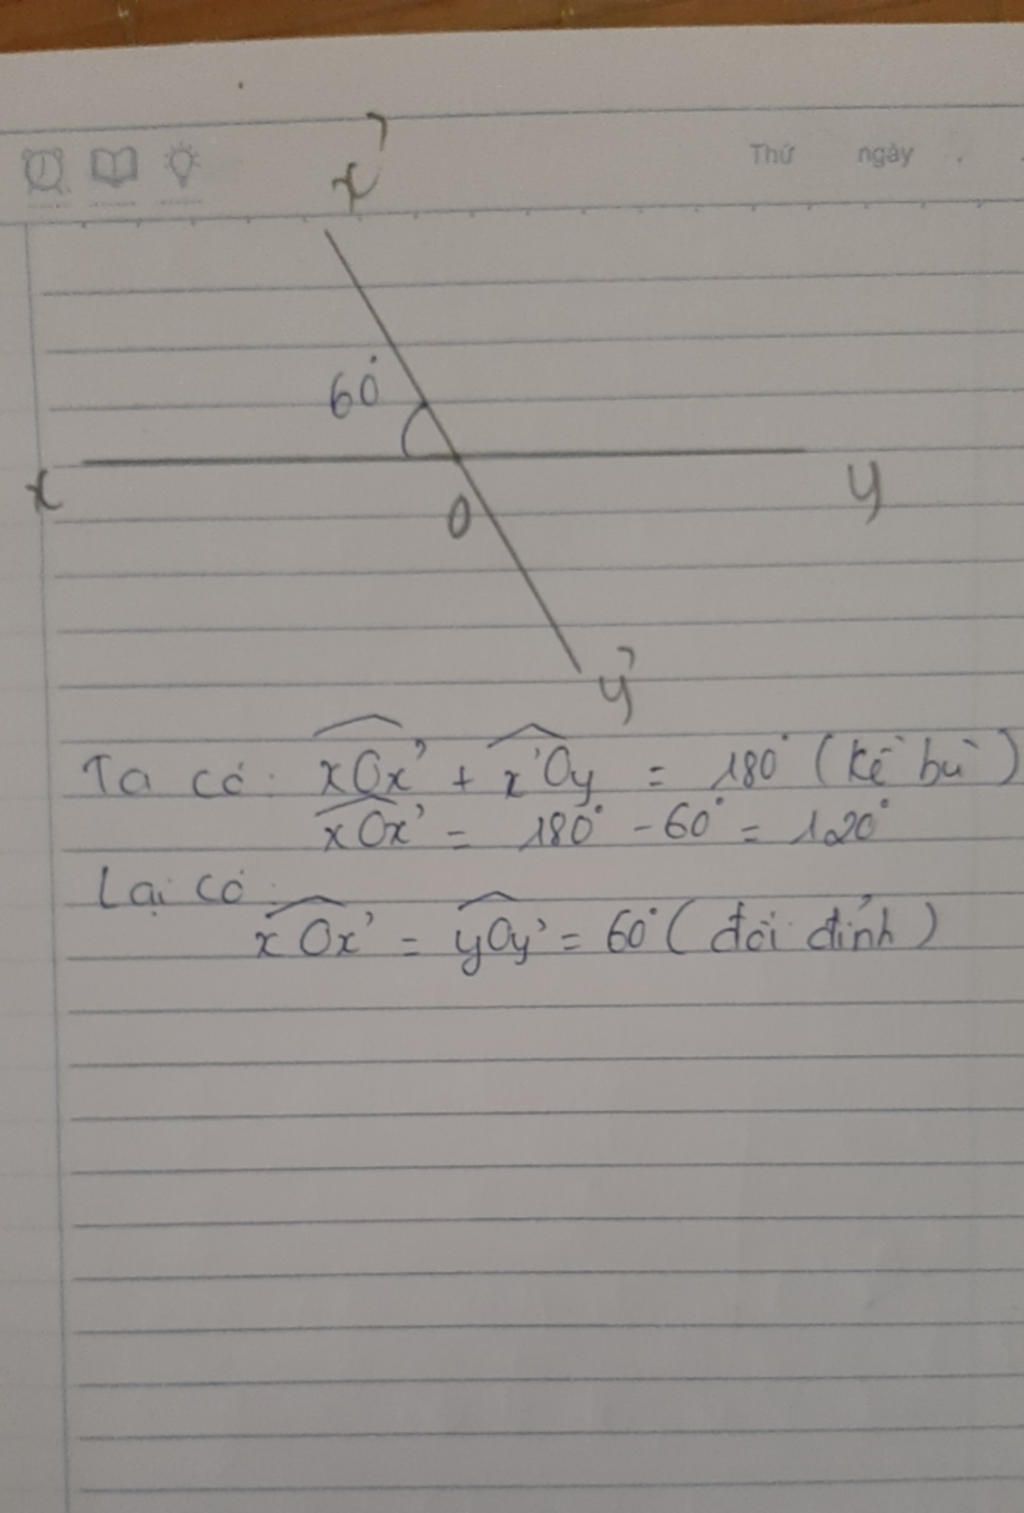 Thứ ngày .
x'
60°
x
y
O
y'
Ta có: xOx' + x'Oy = 180° (kề bù)
xOx' = 180° - 60° = 120°
Lại có:
xOx' = yOy' = 60° (đối đỉnh)